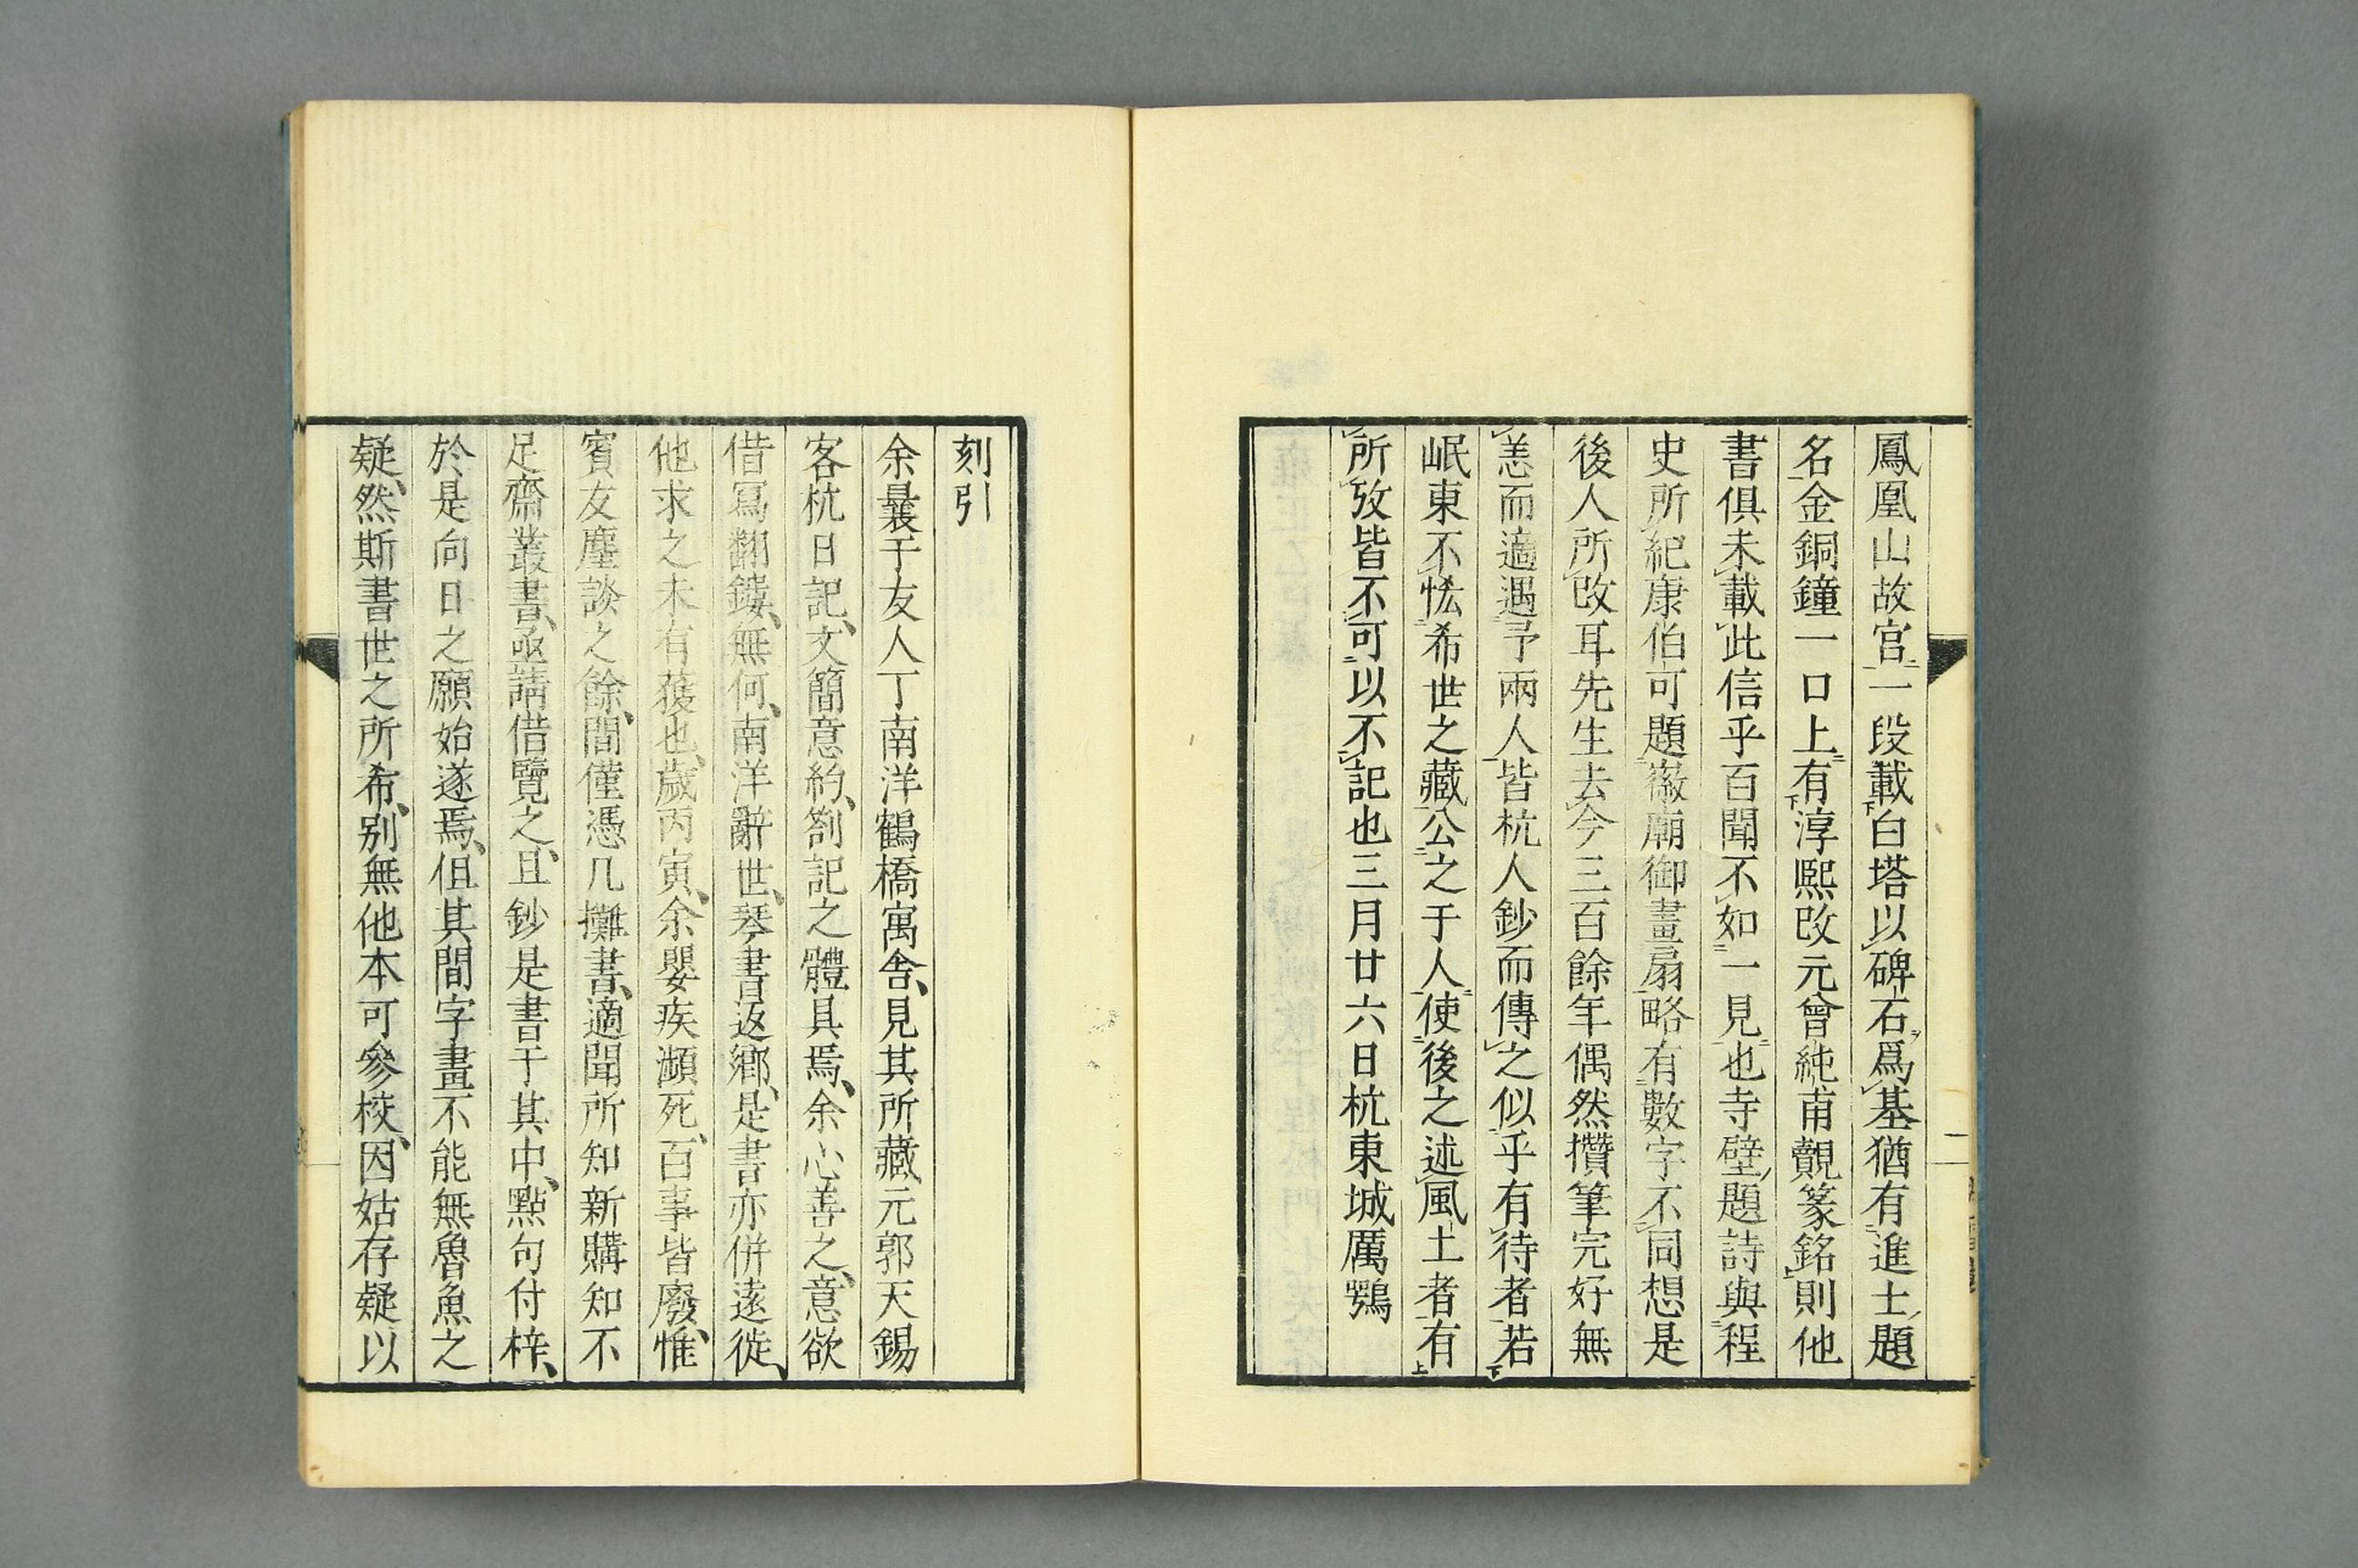 鳳凰山故宮一段載白塔以碑石爲基猶有進士題
名金銅鐘一口上有淳熙改元曾純甫覿篆銘則他
書俱未載此信乎百聞不如一見也寺壁題詩與程
史所紀康伯可題徽廟御畫扇略有數字不同想是
後人所改耳先生去今三百餘年偶然攢筆完好無
恙而適遇予兩人皆杭人鈔而傳之似乎有待者若
岷東不恡希世之藏公之于人使後之述風土者有
所攷皆不可以不記也三月廿六日杭東城厲鶚
二
刻引
余曩于友人丁南洋鶴橋寓舍、見其所藏元郭天錫
客杭日記、文簡意約、劄記之體具焉、余心善之、意欲
借冩翻鏤、無何、南洋辭世、琴書返鄉、是書亦併遠徙、
他求之未有獲也、歲丙寅、余嬰疾瀕死、百事皆廢、惟
賓友麈談之餘、間僅憑几攤書、適聞所知新購知不
足齋叢書、亟請借覽之、且鈔是書于其中、點句付梓、
於是向日之願始遂焉、但其間字畫不能無魯魚之
疑、然斯書世之所希、别無他本可參校、因姑存疑以